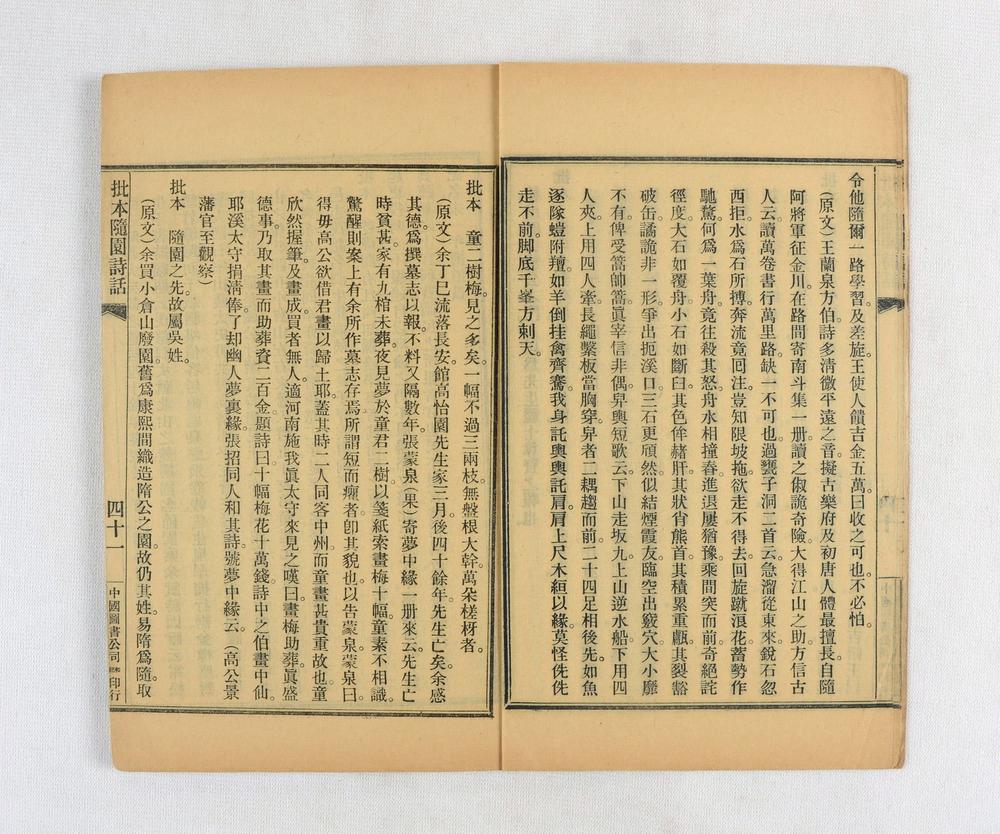 令他隨爾一路學習。及差旋。王使人饋吉金五萬。曰收之可也。不必怕。
(原文)王蘭泉方伯詩。多清微平遠之音。擬古樂府及初唐人體最擅長。自隨
阿將軍征金川。在路間寄南斗集一册。讀之俶詭奇險。大得江山之助。方信古
人云。讀萬卷書。行萬里路。缺一不可也。過甕子洞二首云。急溜從東來。銳石忽
西拒。水為石所摶。奔流竟囘注。豈知限坡拖。欲走不得去。回旋蹴浪花。蓄勢作
馳驁。何為一葉舟。竟往殺其怒。舟水相撞舂。進退屢猶豫。乘間突而前。奇絕詫
徑度。大石如覆舟。小石如斷臼。其色侔赭肝。其狀肖熊首。其積累重甗。其裂豁
破缶。譎詭非一形。爭出扼溪口。三石更頑然。似結煙霞友。臨空出竅穴。大小靡
不有。俾受篙師篙。眞宰信非偶。舁輿短歌云。下山走坂九。上山逆水船。下用四
人夾。上用四人牽。長繩繫板當胸穿。舁者二耦趨而前。二十四足相後先。如魚
逐隊螘附羶。如羊倒挂禽齊騫。我身託輿輿託肩。肩上尺木絙以緣。莫怪侁侁
走不前。脚底千峯方刺天。
批本　童二樹梅。見之多矣。一幅不過三兩枝。無盤根大幹。萬朵槎枒者。
(原文)余丁巳流落長安。館高怡園先生家三月。後四十餘年。先生亡矣。余感
其德。為撰墓志以報。不料又隔數年。張蒙泉(果)寄夢中緣一册來云。先生亡
時貧甚。家有九棺未葬。夜見夢於童君二樹。以箋紙索畫梅十幅。童素不相識。
驚醒則案上有余所作墓志存焉。所謂短而癯者。卽其貌也。以告蒙泉。蒙泉曰。
得毋高公欲借君畫以歸土耶。蓋其時二人同客中州。而童畫甚貴重故也。童
欣然握筆。及畫成。買者無人。適河南施我眞太守來見之。嘆曰。畫梅助葬。眞盛
德事。乃取其畫而助葬資二百金。題詩曰。十幅梅花十萬錢。詩中之伯畫中仙。
耶溪太守捐清俸。了却幽人夢裏緣。張招同人和其詩。號夢中緣云。(高公景
藩官至觀察)
批本　隨園之先。故屬吳姓。
(原文)余買小倉山廢園。舊為康熙間織造隋公之園。故仍其姓。易隋為隨。取
批本隨園詩話
四十一
中國圖書公司
印行